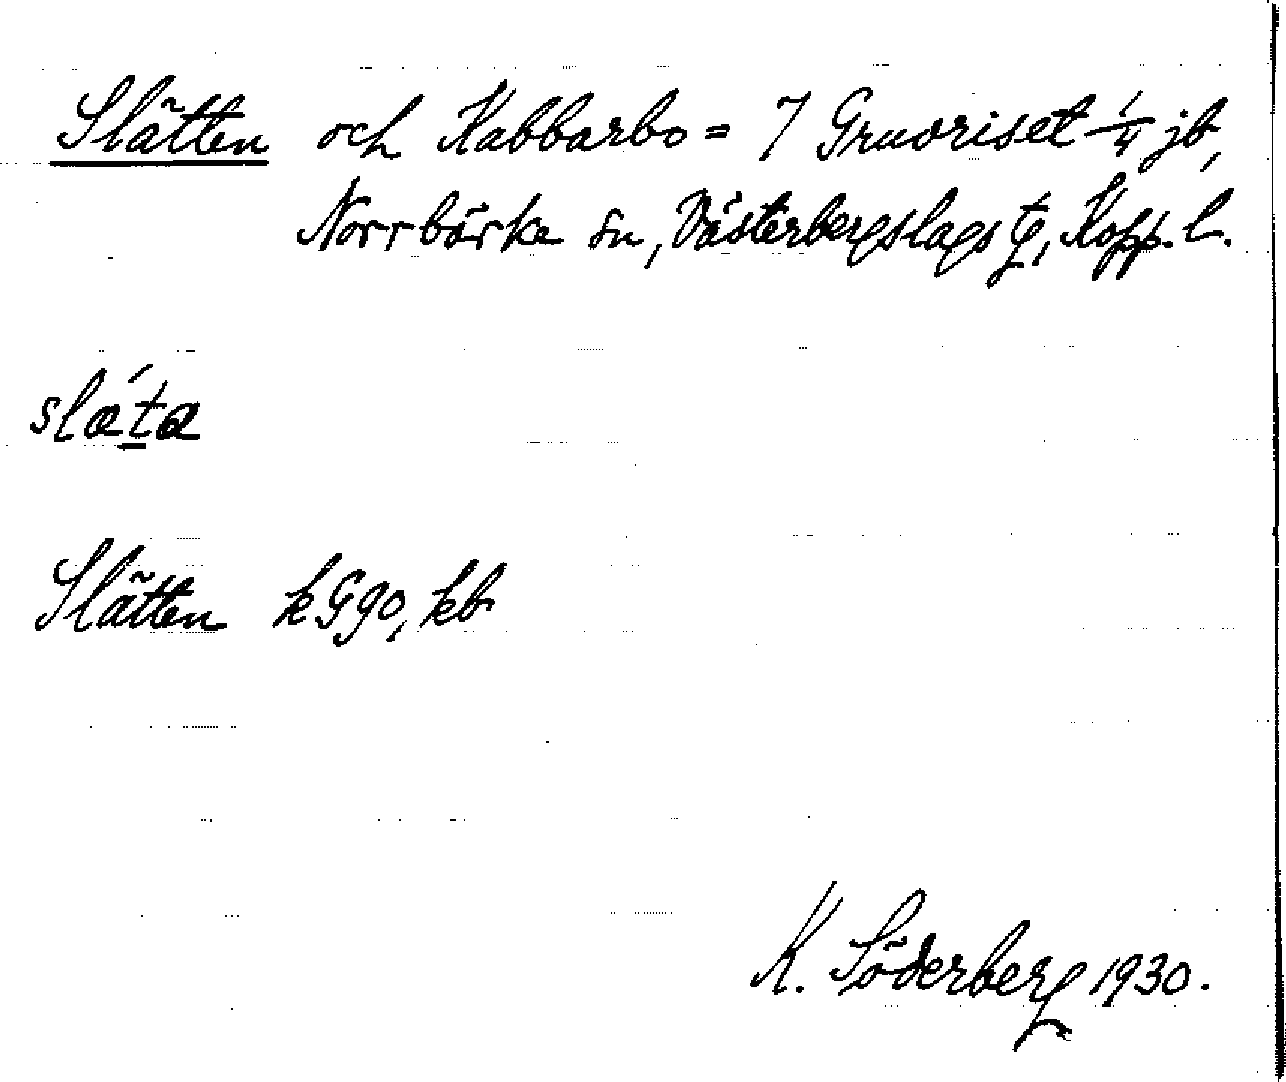 Slätten och Kabbarbo = 7 Gruvriset 1/4 jb,
Norrbärke sn, Västerbergslags tg, Kopp. l.
slæ´ta
Slätten k G90, kb
K. Söderberg 1930.